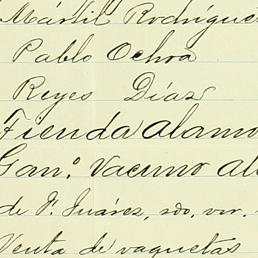 Mártil Rodrígue
Pablo Ochoa
Reyes Díaz
Tienda alamo
Gan.º Vacuno al
de P. Juárez, sdo. ver.
Venta de vaquetas